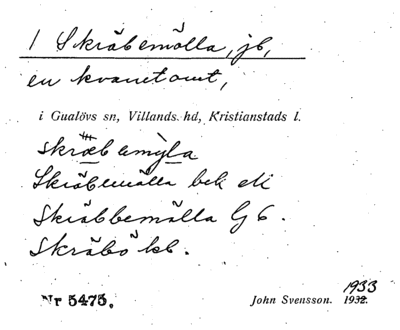 1 Skräbemölla, jb,
en kvarntomt,
i Gualövs sn, Villands hd, Kristianstads l.
skræbemỳla
Skräbemölla bek eti
Skräbbemölla G 6.
Skräbö kb.
Nr 5475. John Svensson. 1932. 1933